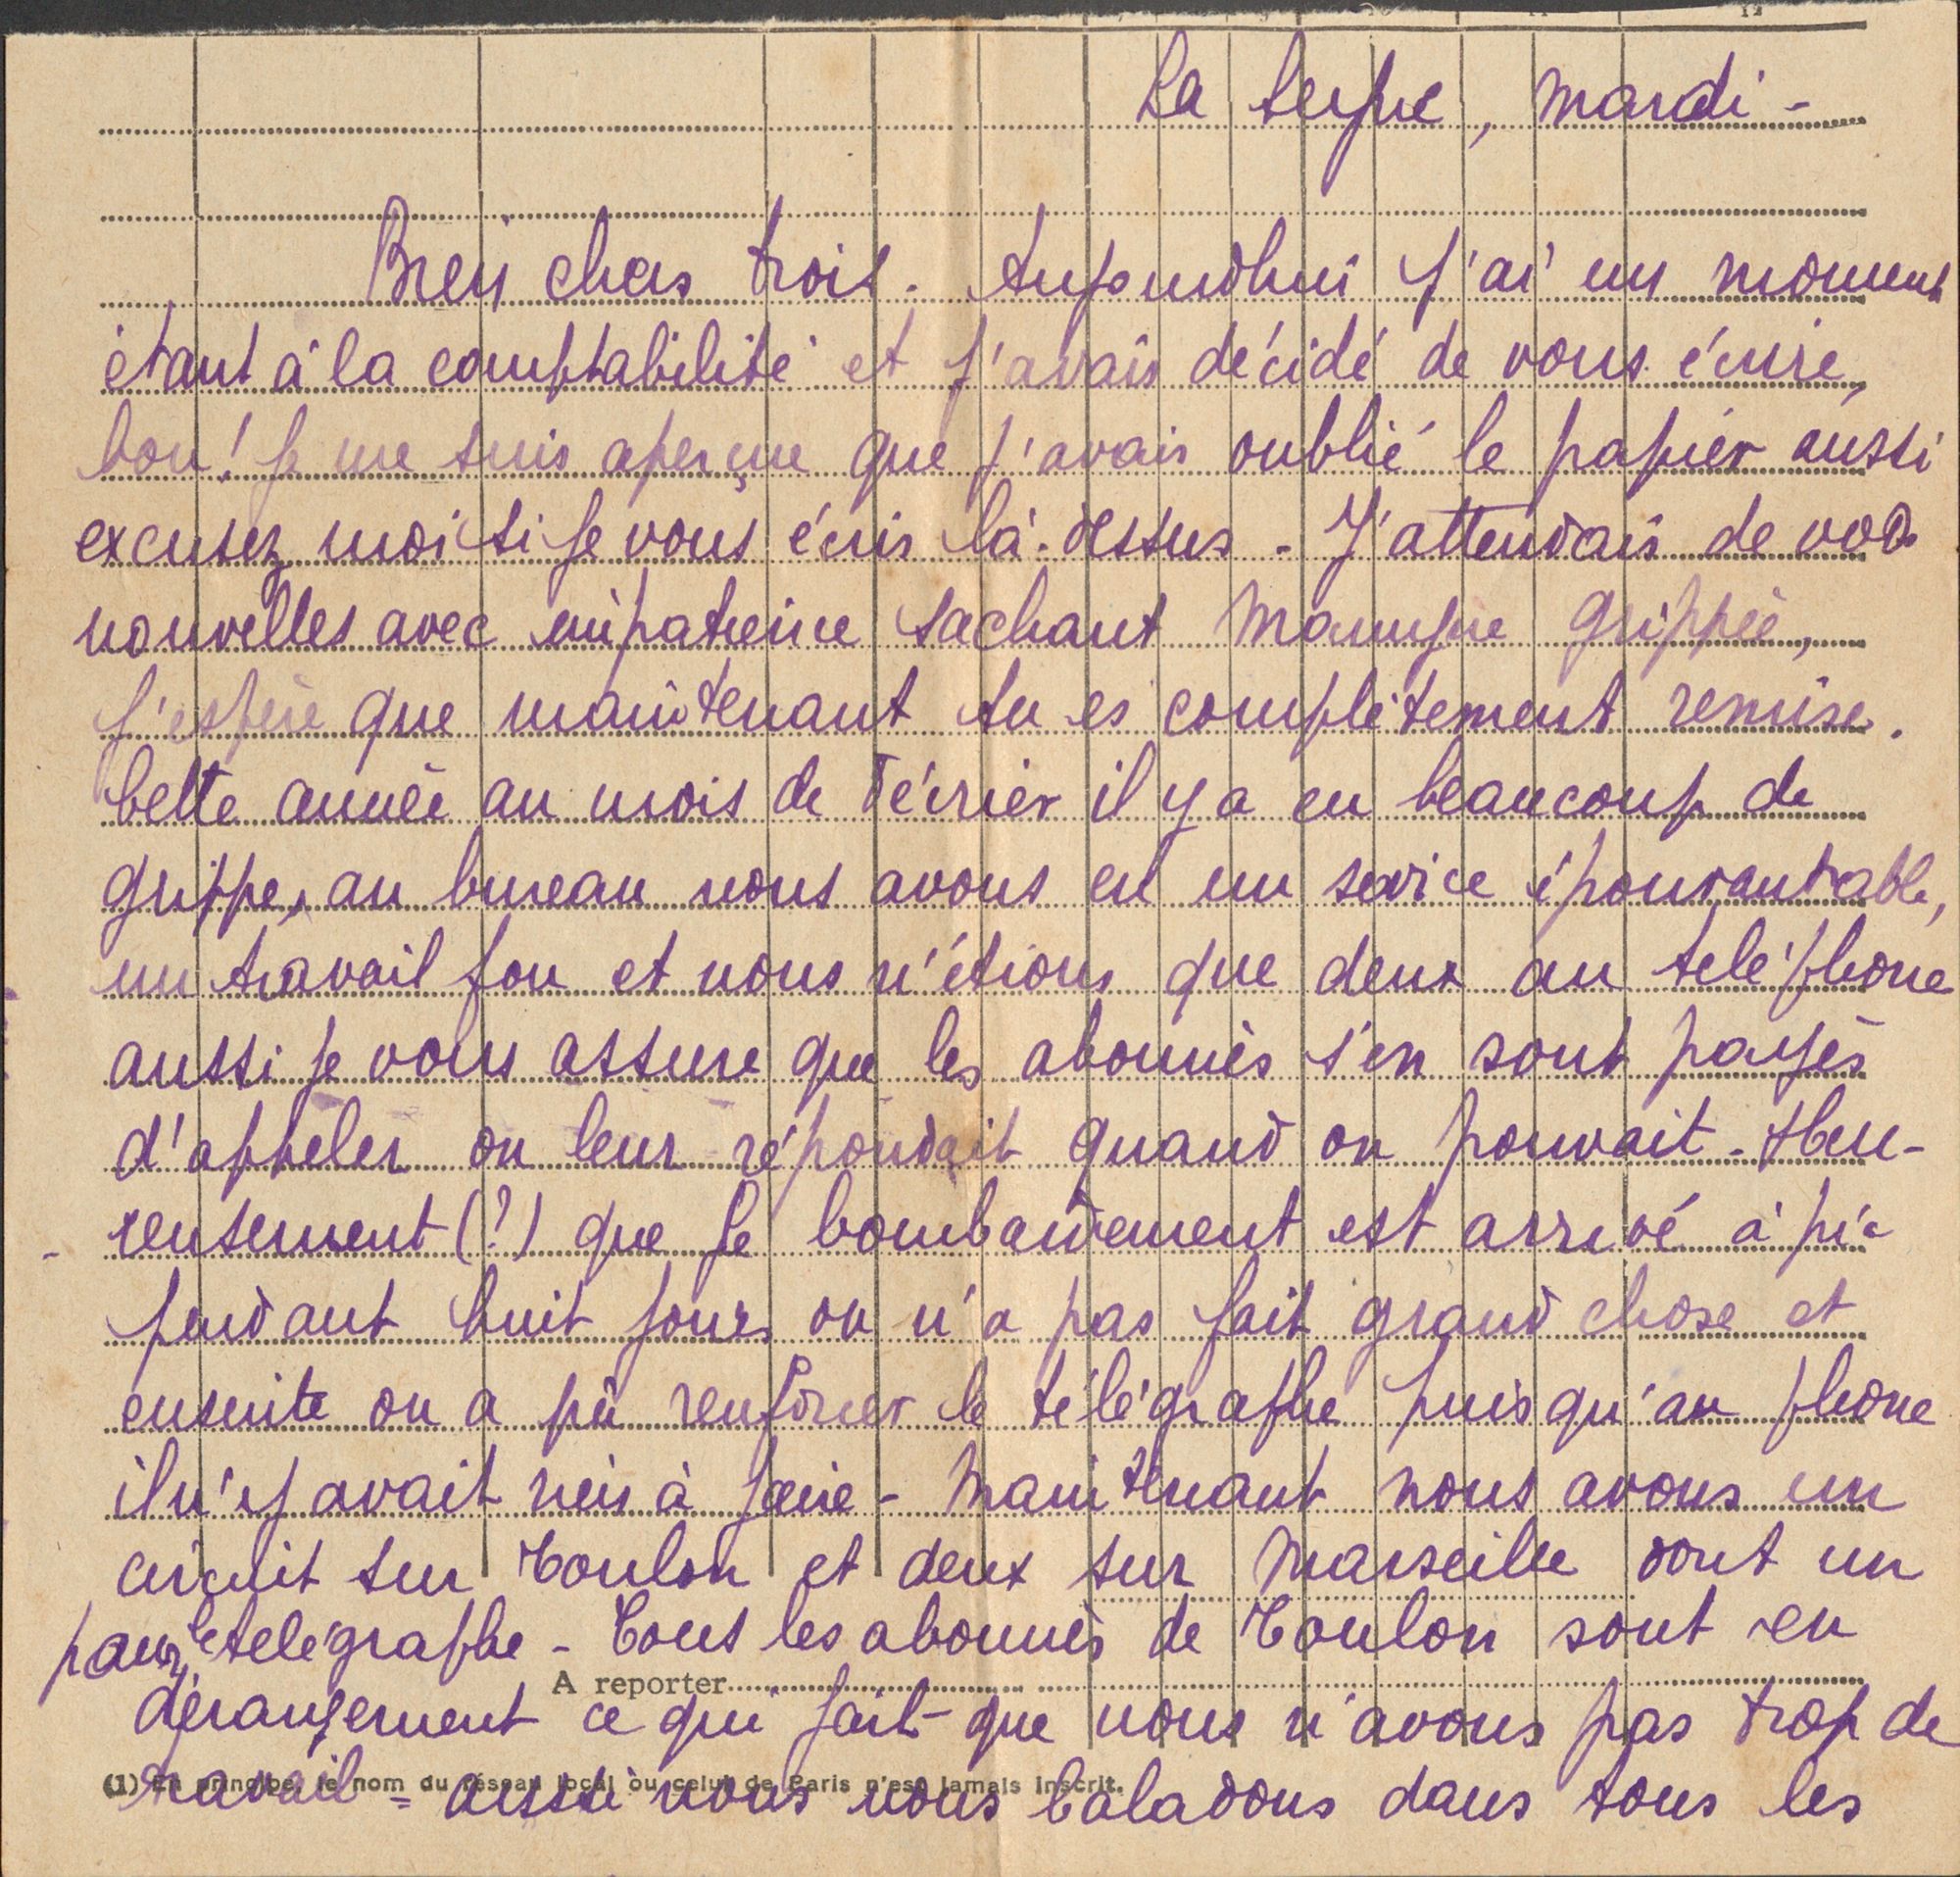 La Seyne, mardi -
Bien chers trois. Aujourdhui j'ai un moment
étant à la comptabilité et j'avais décidé de vous écrire,
bon! Je me suis aperçue que j'avais oublié le papier aussi
excusez moi si je vous écris là-dessus - J'attendais de vos
nouvelles avec impatience sachant grippée,
j'espère que maintenant tu es complètement remise.
Cette année au mois de Février il y a eu beaucoup de
grippe, au bureau nous avons eu un service épouvantable,
un travail fou et nous n'étions que deux au téléphone
aussi je vous assure que les abonnés s'en sont payés
d'appeler on leur répondait quand on pouvait - Heu-
- reusement (?) que le bombardement est arrivé à pic
pendant huit jours on n'a pas fait grand chose et
ensuite on a pû renforcer le télégraphe puisqu'au phone
il n'y avait rien à faire - Maintenant nous avons un
circuit sur Toulon et deux sur Marseille dont un
pour le télégraphe - Tous les abonnés de Toulon sont en
A reporter
dérangement ce qui fait que nous n'avons pas trop de
(1) En principe, le nom du réseau local ou celui de Paris n'est jamais inscrit.
travail - aussi nous nous baladons dans tous les